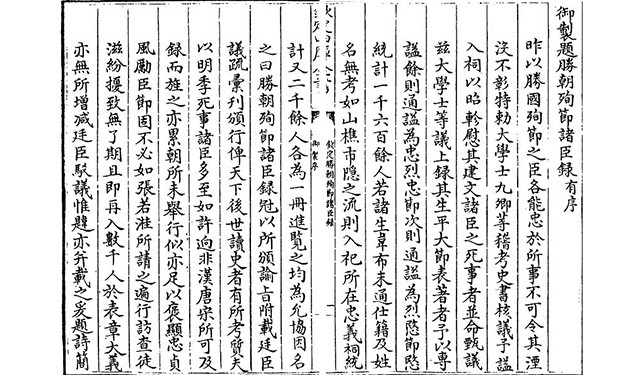 御製題勝朝殉節諸臣錄有序
昨以勝國殉節之臣各能忠於所事不可令其湮
沒不彰特勅大學士九卿等稽考史書核議予諡
入祠以昭軫慰其建文諸臣之死事者並命甄議
茲大學士等議上錄其生平大節表著者予以專
諡餘則通諡為忠烈忠節次則通諡為烈愍節愍
統計一千六百餘人若諸生韋布未通仕籍及姓
名無考如山樵市隱之流則入祀所在忠義祠統
欽定勝朝殉節諸臣錄
御製序
一
計又二千餘人各為一冊進覽之均為允協因名
之曰勝朝殉節諸臣錄冠以所頒諭旨附載廷臣
議疏彙刊頒行俾天下後世讀史者有所考質夫
以明季死事諸臣多至如許迥非漢唐宋所可及
錄而旌之亦累朝所未舉行似亦足以褒顯忠貞
風勵臣節固不必如張若溎所請之遍行訪查徒
滋紛擾致無了期且即再入數千人於表章大義
亦無所增減廷臣駁議惟韙亦并載之爰題詩簡